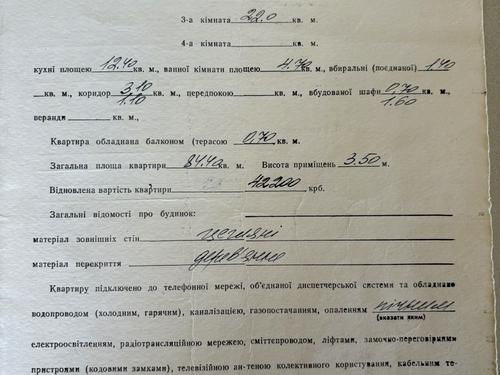 3-а кімната 22,0 кв. м.
4-а кімната кв. м.
кухні площею 12.40 кв. м., ванної кімнати площею 4.70 кв. м., вбиральні (поєднаної) 1,40
кв. м., коридор 3,10 кв. м., передпокою кв. м., вбудованої шафи 0,70 кв. м.,
1.10 1.60
веранди кв. м.,
Квартира обладнана балконом (терасою 0,70 кв. м.
Загальна площа квартири 84.40 кв. м. Висота приміщень 3.50 м.
Відновлена вартість квартири 42200 крб.
Загальні відомості про будинок:
матеріал зовнішніх стін цегляні
матеріал перекриття дерев'яне
Квартиру підключено до телефонної мережі, об'єднаної диспетчерської системи та обладнано
водопроводом (холодним, гарячим), каналізацією, газопостачанням, опаленням пічним
(вказати яким)
електроосвітленням, радіотрансляційною мережею, сміттєпроводом, ліфтами, замочно-переговорними
пристроями (кодовими замками), телевізійною ан-теною колективного користування, кабельним те-